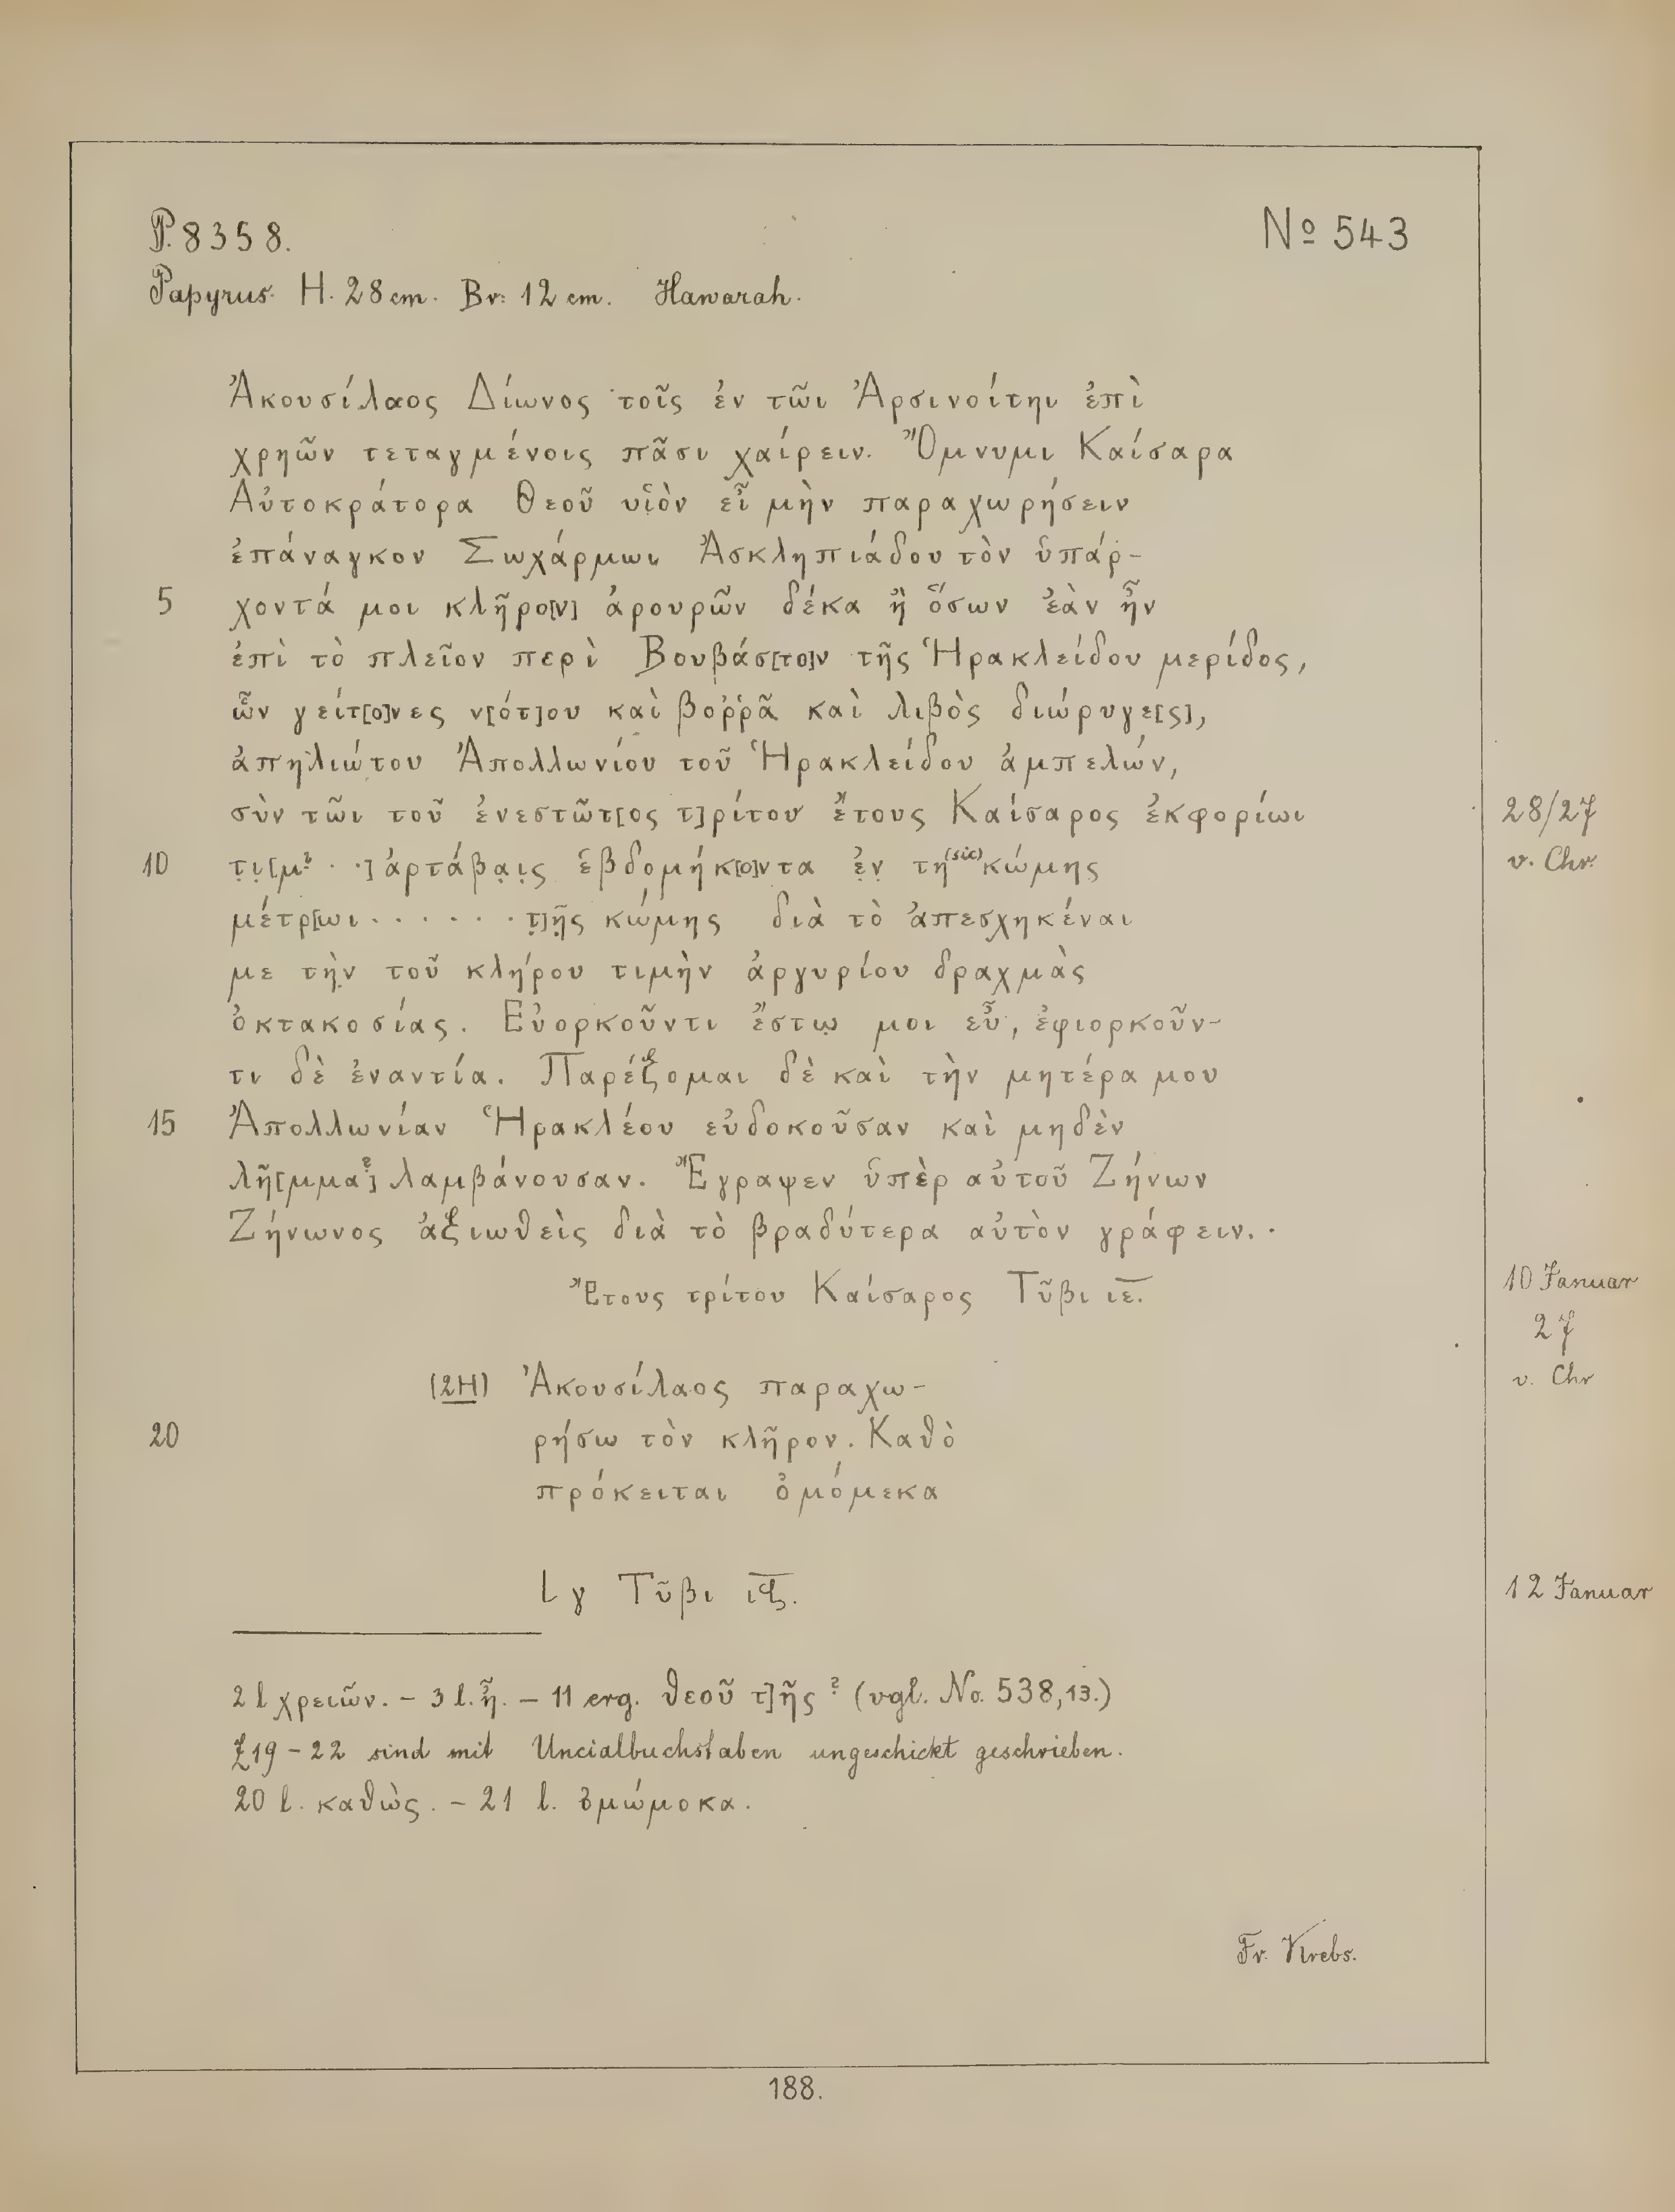 P. 8358.
Nº 543
Papyrus. H. 28 cm. Br: 12 cm. Hawarah.
Ἀκουσίλαος Δίωνος τοῖς ἐν τῶι Ἀρσινοίτηι ἐπὶ
χρηῶν τεταγμένοις πᾶσι χαίρειν. Ὄμνυμι Καίσαρα
Αὐτοκράτορα Θεοῦ υἱὸν εἶ μὴν παραχωρήσειν
ἐπάναγκον Σωχάρμωι Ἀσκληπιάδου τὸν ὑπάρ-
5 χοντά μοι κλῆρο[ν] ἀρουρῶν δέκα ἢ ὅσων ἐὰν ἦν
ἐπὶ τὸ πλεῖον περὶ Βουβάσ[το]ν τῆς Ἡρακλείδου μερίδος,
ὧν γείτ[ο]νες ν[ότ]ου καὶ βοῤῥᾶ καὶ λιβὸς διώρυγε[ς],
ἀπηλιώτου Ἀπολλωνίου τοῦ Ἡρακλείδου ἀμπελών,
σὺν τῶι τοῦ ἐνεστῶτ[ος τ]ρίτου ἔτους Καίσαρος ἐκφορίωι
28/27
v. Chr.
10 τ̣ι̣[μ? . .] ἀρτάβα̣ι̣ς ἑβδομήκ[ο]ντα ἐ̣ν̣ τη (sic) κώμης
μέτρ[ωι . . . . . . τ̣]ῆ̣ς κώμης διὰ τὸ ἀπεσχηκέναι
με τὴ̣ν τοῦ κλήρου τιμὴν ἀργυρίου δραχμὰς
ὀκτακοσίας. Εὐορκοῦντι ἔστω̣ μοι εὖ, ἐφιορκοῦν-
τι δὲ ἐναντία. Παρέξομαι δὲ καὶ τὴν μητέρα μου
15 Ἀπολλωνίαν Ἡρακλέου εὐδοκοῦσαν καὶ μηδὲν
λῆ[μμα?] λαμβάνουσαν. Ἔγραψεν ὑπὲρ αὐτοῦ Ζήνων
Ζήνωνος ἀξιωθεὶς διὰ τὸ βραδύτερα αὐτὸν γράφειν.
Ἔτους τρίτου Καίσαρος Τῦβι ι̅ε̅.
10 Januar
27
v. Chr
(2H) Ἀκουσίλαος παραχω-
20 ρήσω τὸν κλῆρον. Καθὸ
πρόκειται ὀμόμεκα
L γ Τῦβι ι̅ζ̅.
12 Januar
2 l χρειῶν. – 3 l. ἦ. – 11 erg. θεοῦ τ]ῆς ? (vgl. No. 538,13.)
Z 19 – 22 sind mit Uncialbuchstaben ungeschickt geschrieben.
20 l. καθὼς. – 21 l. ὀμώμοκα.
Fr. Krebs.
188.